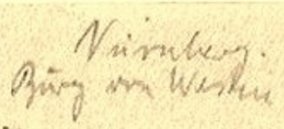 Nürnberg.
Burg von Westen